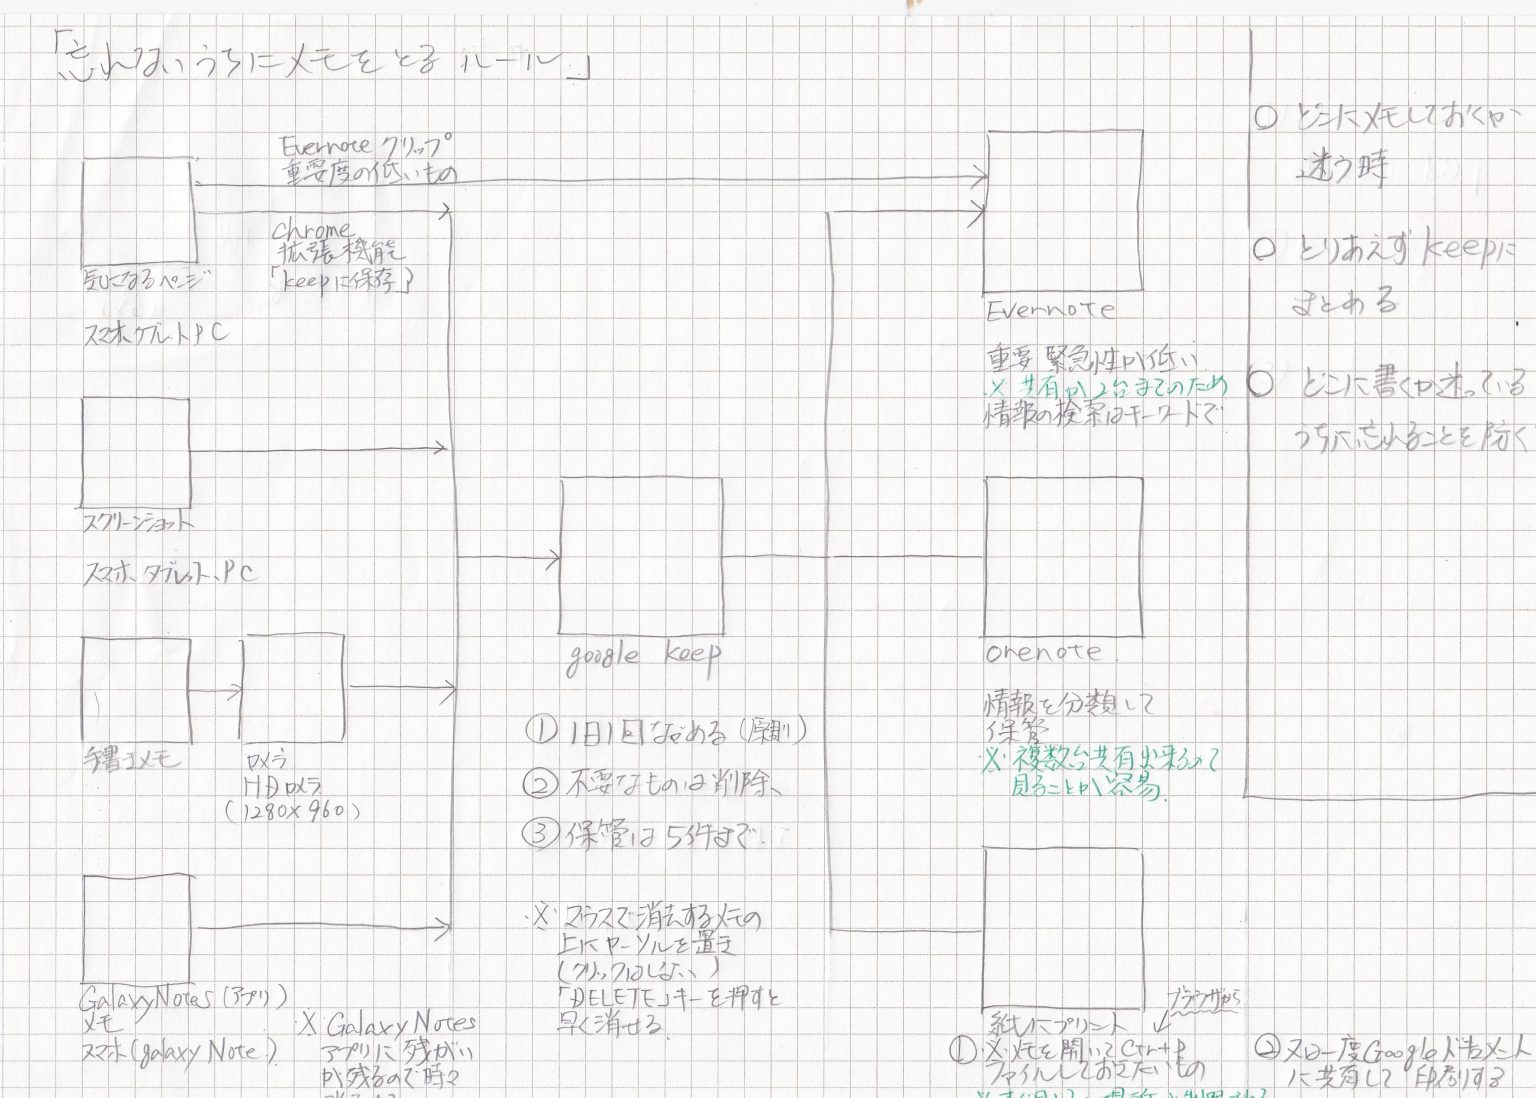 「忘れないうちにメモをとるルール」
Evernote クリップ
重要度の低いもの
chrome
拡張機能
「keepに保存」
気になるページ
スマホ、タブレットPC
スクリーンショット
スマホ、タブレット、PC
手書きメモ
カメラ
HDカメラ
(1280×960)
GalaxyNotes(アプリ)
メモ
スマホ(galaxy Note)
※ GalaxyNotes
アプリに残がい
が残るので時々
google keep
① 1日1回ながめる(原則)
② 不要なものは削除、
③ 保管は5件まで
※ マウスで消去するメモの
上にカーソルを置き
(クリックはしない)
「DELETE」キーを押すと
早く消せる
Evernote
重要 緊急性が低い
※ 共有が2台までのため
情報の検索はキーワードで
onenote
情報を分類して
保管
※ 複数台共有出来るので
見ることが容易
紙にプリント
ブラウザから
① ※メモを開いてCtr+P
ファイルしておきたいもの
② 又は一度Googleドキュメント
に共有して印刷する
○ どこにメモしておくか
迷う時
○ とりあえずkeepに
まとめる
○ どこに書くか迷っている
うちに忘れることを防ぐ